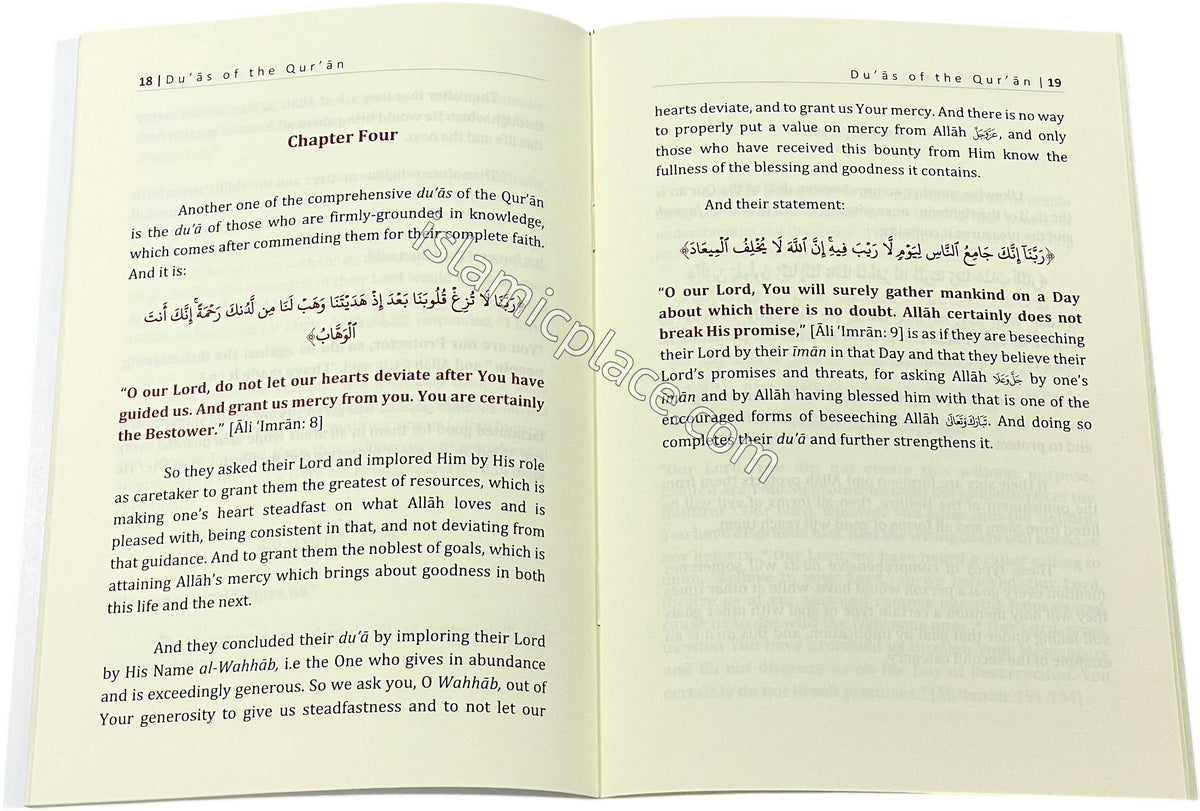 18 | Du’ās of the Qur’ān
Chapter Four
Another one of the comprehensive du’ās of the Qur’ān
is the du’ā of those who are firmly-grounded in knowledge,
which comes after commending them for their complete faith.
And it is:
﴿رَبَّنَا لَا تُزِغْ قُلُوبَنَا بَعْدَ إِذْ هَدَيْتَنَا وَهَبْ لَنَا مِن لَّدُنكَ رَحْمَةً ۚ إِنَّكَ أَنتَ
ٱلْوَهَّابُ﴾
“O our Lord, do not let our hearts deviate after You have
guided us. And grant us mercy from you. You are certainly
the Bestower.” [Āli ‘Imrān: 8]
So they asked their Lord and implored Him by His role
as caretaker to grant them the greatest of resources, which is
making one’s heart steadfast on what Allāh loves and is
pleased with, being consistent in that, and not deviating from
that guidance. And to grant them the noblest of goals, which is
attaining Allāh’s mercy which brings about goodness in both
this life and the next.
And they concluded their du’ā by imploring their Lord
by His Name al-Wahhāb, i.e the One who gives in abundance
and is exceedingly generous. So we ask you, O Wahhāb, out of
Your generosity to give us steadfastness and to not let our
Du’ās of the Qur’ān | 19
hearts deviate, and to grant us Your mercy. And there is no way
to properly put a value on mercy from Allāh عَزَّوَجَلَّ, and only
those who have received this bounty from Him know the
fullness of the blessing and goodness it contains.
And their statement:
﴿رَبَّنَآ إِنَّكَ جَامِعُ ٱلنَّاسِ لِيَوْمٍ لَّا رَيْبَ فِيهِ ۚ إِنَّ ٱللَّهَ لَا يُخْلِفُ ٱلْمِيعَادَ﴾
“O our Lord, You will surely gather mankind on a Day
about which there is no doubt. Allāh certainly does not
break His promise,” [Āli ‘Imrān: 9] is as if they are beseeching
their Lord by their īmān in that Day and that they believe their
Lord’s promises and threats, for asking Allāh جَلَّ وَعَلَا by one’s
īmān and by Allāh having blessed him with that is one of the
encouraged forms of beseeching Allāh تَبَارَكَ وَتَعَالَىٰ. And doing so
completes their du’ā and further strengthens it.
islamicplace.com